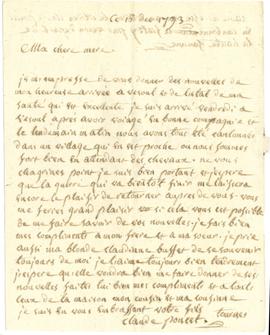 Ce 15 dec 1793
Ma chere mere
je m'empresse de vous donner des nouvelles de
mon heureuse arrivée a vesoul et de l'etat de ma
santé qui est excellente je suis arrivé vendredi a
vesoul apres avoir voiagé en bonne compagnie et
le lendemain matin nous avons tous été cantonner
dans un village qui en est proche ou nous sommes
fort bien en attendant des chevaux ne vous
chagrinés point je suis bien portant et j'espere
que la guerre qui va bientôt finir me laissera
encore le plaisir de retourner aupres de vous
me ferés grand plaisir si cela vous est possible
de me faire savoir de vos nouvelles je fais bien
mes compliments a mon frere et a ma soeur je prie
aussi ma blonde claudinne buffet de se souvenir
toujours de moi je l'aime toujours bien tendrement
j'espere qu'elle voudra bien me faire donner de ses
nouvelles faites lui bien mes compliments et a toute
ceux de la maison mon cousin et ma cousinne
je suis en vous embrassant votre fils
claude poncet tournés